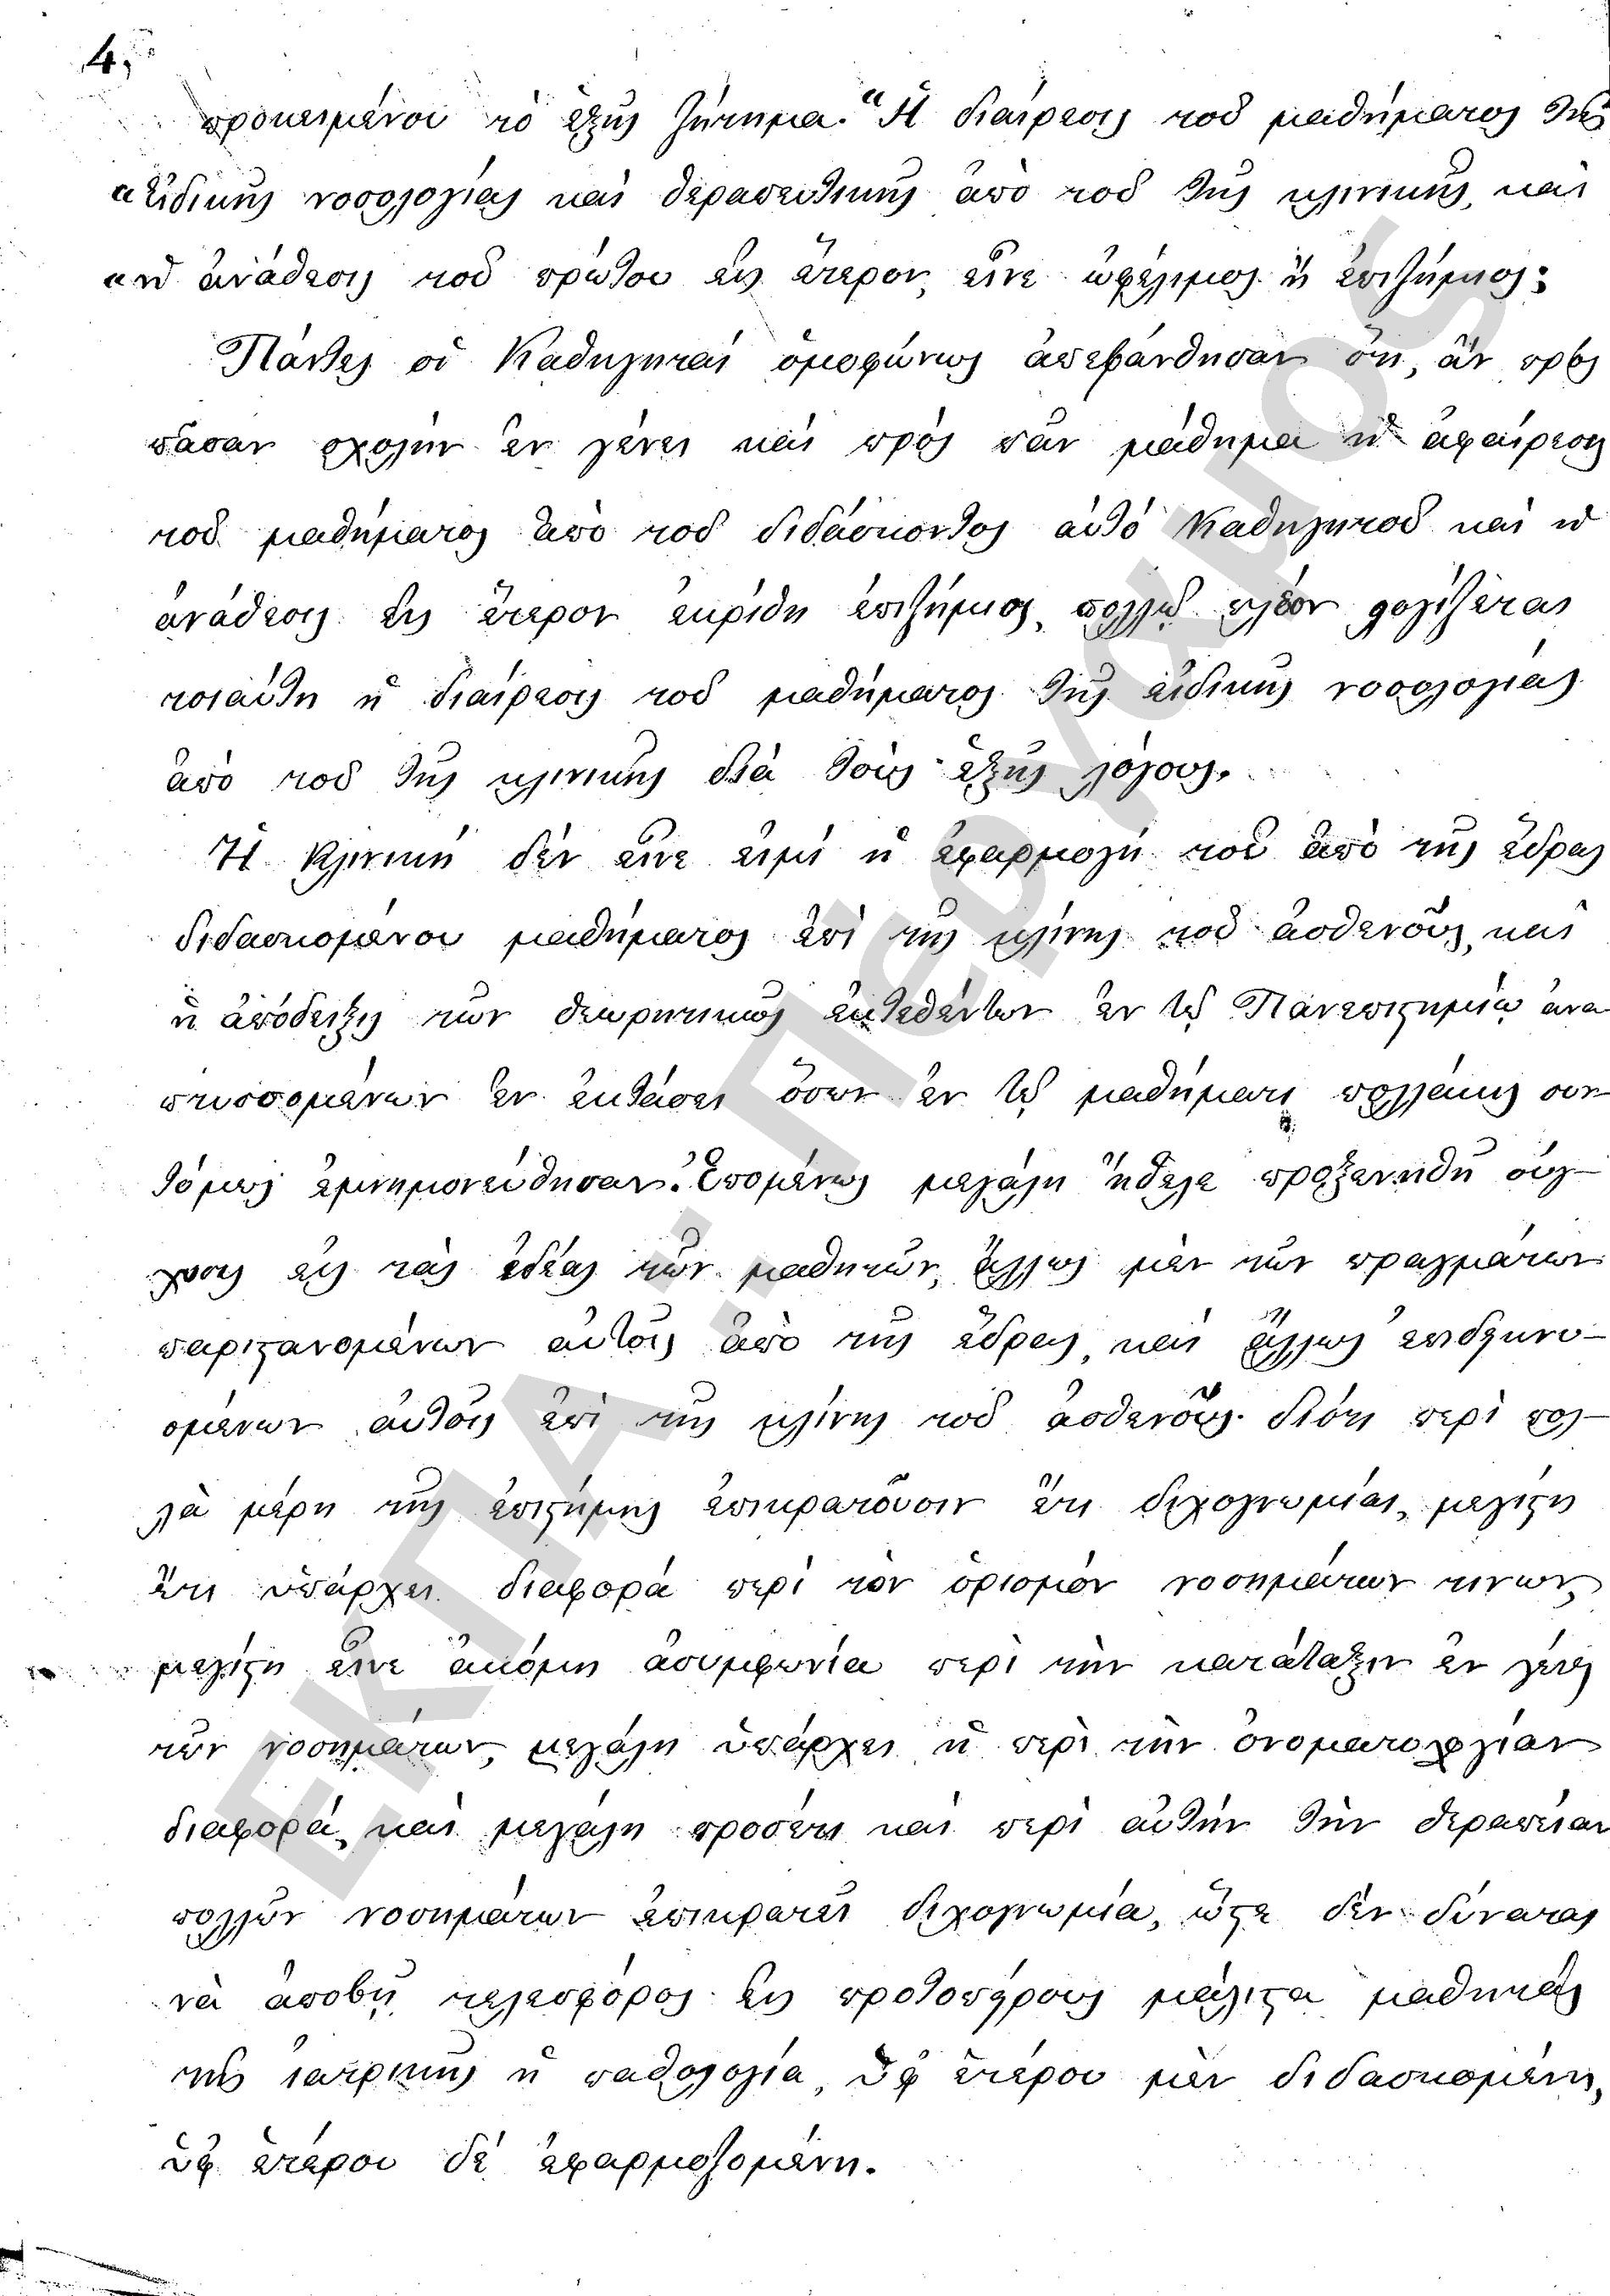 4,
προκειμένου τὸ ἑξῆς ζήτημα. "Ἡ διαίρεσις τοῦ μαθήματος τῆς
"εἰδικῆς νοσολογίας καὶ θεραπευτικῆς ἀπὸ τοῦ τῆς κλινικῆς, καὶ
"ἡ ἀνάθεσις τοῦ πρώτου εἰς ἕτερον, εἶνε ὠφέλιμος ἢ ἐπιζήμιος;
Πάντες οἱ Καθηγηταί ὁμοφώνως ἀπεφάνθησαν ὅτι, ἂν πρὸς
πᾶσαν σχολὴν ἐν γένει καὶ πρὸς πᾶν μάθημα ἡ ἀφαίρεσις
τοῦ μαθήματος ἀπὸ τοῦ διδάσκοντος αὐτό Καθηγητοῦ καὶ ἡ
ἀνάθεσις εἰς ἕτερον ἐκρίθη ἐπιζήμιος, πολλῷ πλέον λογίζεται
τοιαύτη ἡ διαίρεσις τοῦ μαθήματος τῆς εἰδικῆς νοσολογίας
ἀπὸ τοῦ τῆς κλινικῆς διὰ τοὺς ἑξῆς λόγους.
Ἡ Κλινική δὲν εἶνε εἰμὴ ἡ ἐφαρμογή τοῦ ἀπὸ τῆς ἕδρας
διδασκομένου μαθήματος ἐπὶ τῆς κλίνης τοῦ ἀσθενοῦς, καὶ
ἡ ἀπόδειξις τῶν θεωρητικῶς ἐκτεθέντων ἐν τῷ Πανεπιστημίῳ ἀνα
πτυσσομένων ἐν ἐκτάσει ὅσων ἐν τῷ μαθήματι πολλάκις συν
τόμως ἐμνημονεύθησαν. Ἑπομένως μεγάλη ἤθελε προξενηθῆ σύγ-
χυσις εἰς τὰς ἰδέας τῶν μαθητῶν, ἄλλως μὲν τῶν πραγμάτων
παριστανομένων αὐτοῖς ἀπὸ τῆς ἕδρας, καὶ ἄλλως ἐπιδεικνυ-
ομένων αὐτοῖς ἐπὶ τῆς κλίνης τοῦ ἀσθενοῦς· διότι περὶ πολ-
λὰ μέρη τῆς ἐπιστήμης ἐπικρατοῦσιν ἔτι διχογνωμίαι, μεγίστη
ἔτι ὑπάρχει διαφορά περὶ τὸν ὁρισμόν νοσημάτων τινων,
μεγίστη εἶνε ἀκόμη ἀσυμφωνία περὶ τὴν κατάταξιν ἐν γένει
τῶν νοσημάτων, μεγάλη ὑπάρχει ἡ περὶ τὴν ὀνοματολογίαν
διαφορά, καὶ μεγάλη προσέτι καὶ περὶ αὐτὴν τὴν θεραπείαν
πολλῶν νοσημάτων ἐπικρατεῖ διχογνωμία, ὥστε δὲν δύναται
νὰ ἀποβῇ τελεσφόρος εἰς πρωτοπείρους μάλιστα μαθητάς
τῆς ἰατρικῆς ἡ παθολογία, ὑφ' ἑτέρου μὲν διδασκομένη,
ὑφ' ἑτέρου δὲ ἐφαρμοζομένη.
ΕΚΠΑ - Πέργαμος